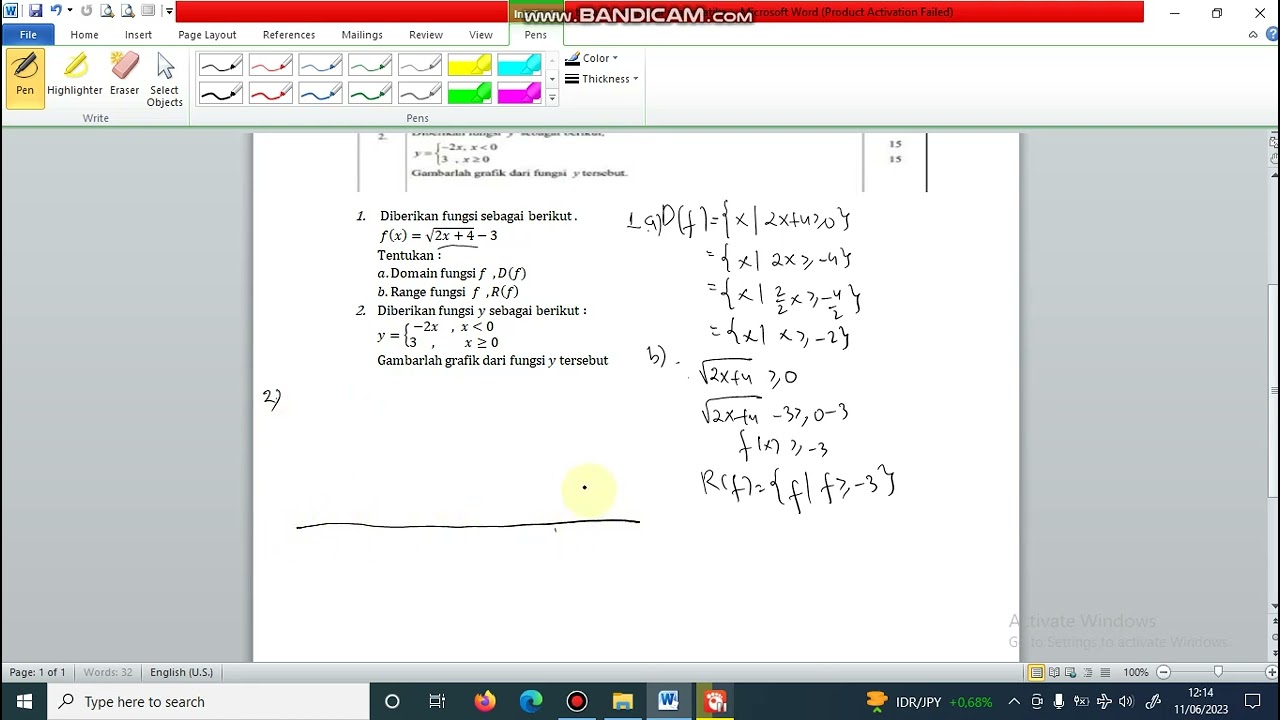 www.BANDICAM.com
Microsoft Word (Product Activation Failed)
File Home Insert Page Layout References Mailings Review View Pens
Pen Highlighter Eraser Select Objects
Color
Thickness
Write Pens
2. Diberikan fungsi y sebagai berikut,
y = {-2x, x < 0
3 , x ≥ 0
Gambarlah grafik dari fungsi y tersebut.
15
15
1. Diberikan fungsi sebagai berikut .
f(x) = √2x + 4 − 3
Tentukan :
a. Domain fungsi f , D(f)
b. Range fungsi f , R(f)
2. Diberikan fungsi y sebagai berikut :
y = {−2x , x < 0
3 , x ≥ 0
Gambarlah grafik dari fungsi y tersebut
1. a) D(f) = {x | 2x+4 ≥ 0}
= {x | 2x ≥ -4}
= {x | 2/2 x ≥ -4/2}
= {x | x ≥ -2}
b) .
√2x+4 ≥ 0
√2x+4 -3 ≥ 0-3
f(x) ≥ -3
R(f) = {f | f ≥ -3}
2)
Activate Windows
Go to Settings to activate Windows.
Page: 1 of 1 Words: 32 English (U.S.) 100%
Type here to search
IDR/JPY +0,68%
12:14
11/06/2023